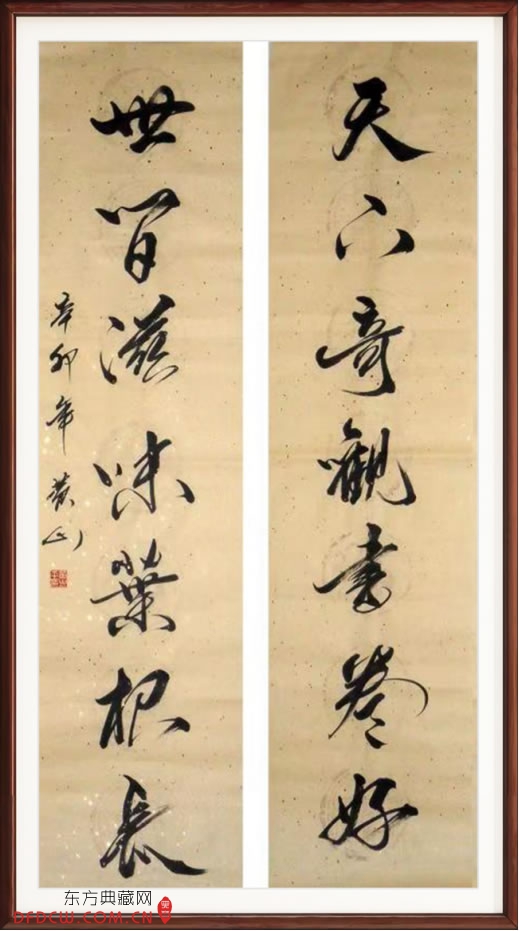 天下奇觀書卷好
世間滋味菜根長
辛卯年黄山
东方典藏网
DFDCW.COM.CN